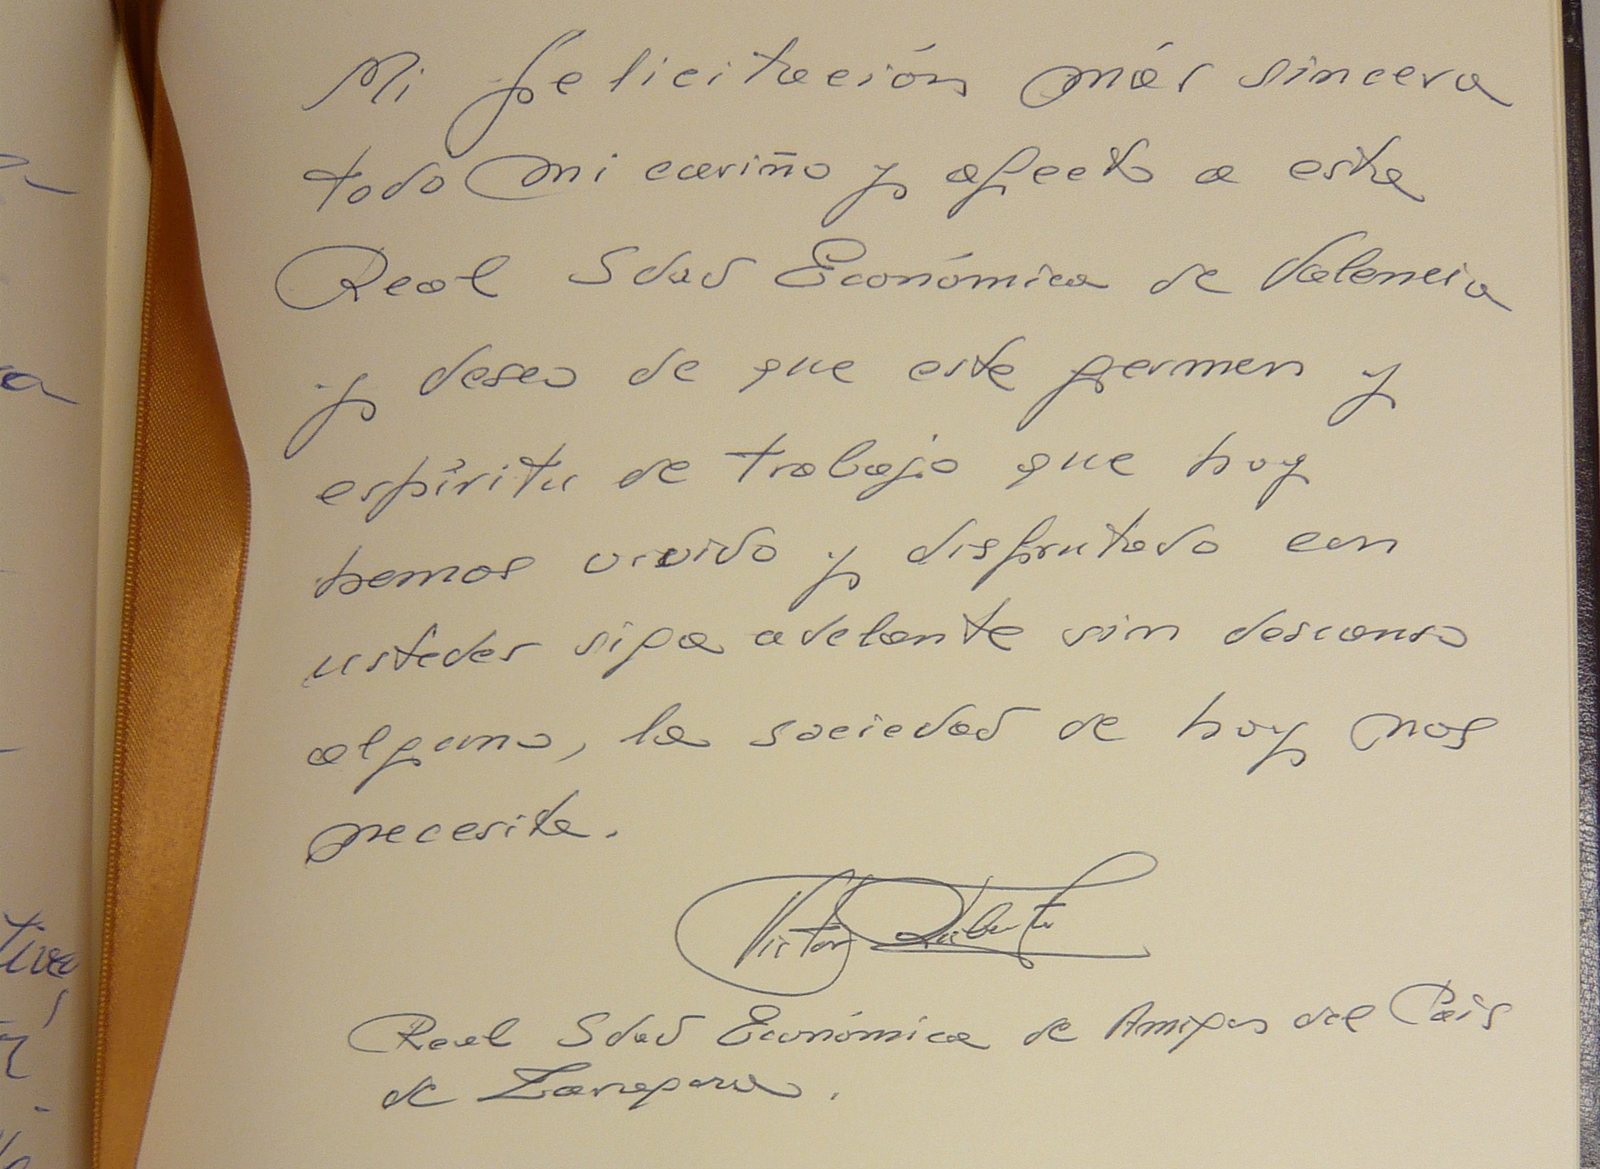 Mi felicitación más sincera
todo mi cariño y afecto a esta
Real Sdad Económica de Valencia
y deseo de que este germen y
espíritu de trabajo que hoy
hemos vivido y disfrutado con
ustedes siga adelante sin descanso
alguno, la sociedad de hoy nos
necesita.
Victor
Real Sdad Económica de Amigos del País
de Zaragoza.